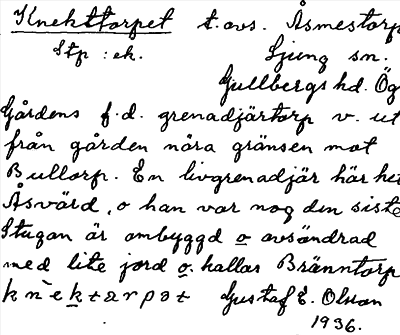 Knekttorpet t. avs. Åsmestorp
Stp : ek. Ljung sn.
Gullbergs hd. Ög
Gårdens f.d. grenadjärtorp v. ut
från gården nära gränsen mot
Bullorp. En livgrenadjär här het
Åsvärd, o han var nog den siste
Stugan är ombyggd o avsöndrad
med lite jord o. kallas Bränntorp
Gustaf E. Olson
1936.